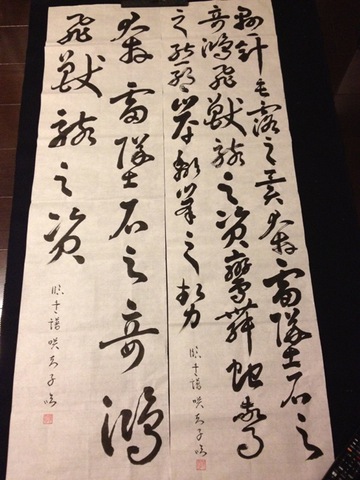 懸針垂露之異奔雷墜石之
奇鴻飛獸駭之資鸞舞蛇驚
之態絕岸頹峯之勢
臨書譜
奔雷墜石之奇鴻
飛獸駭之資
臨書譜